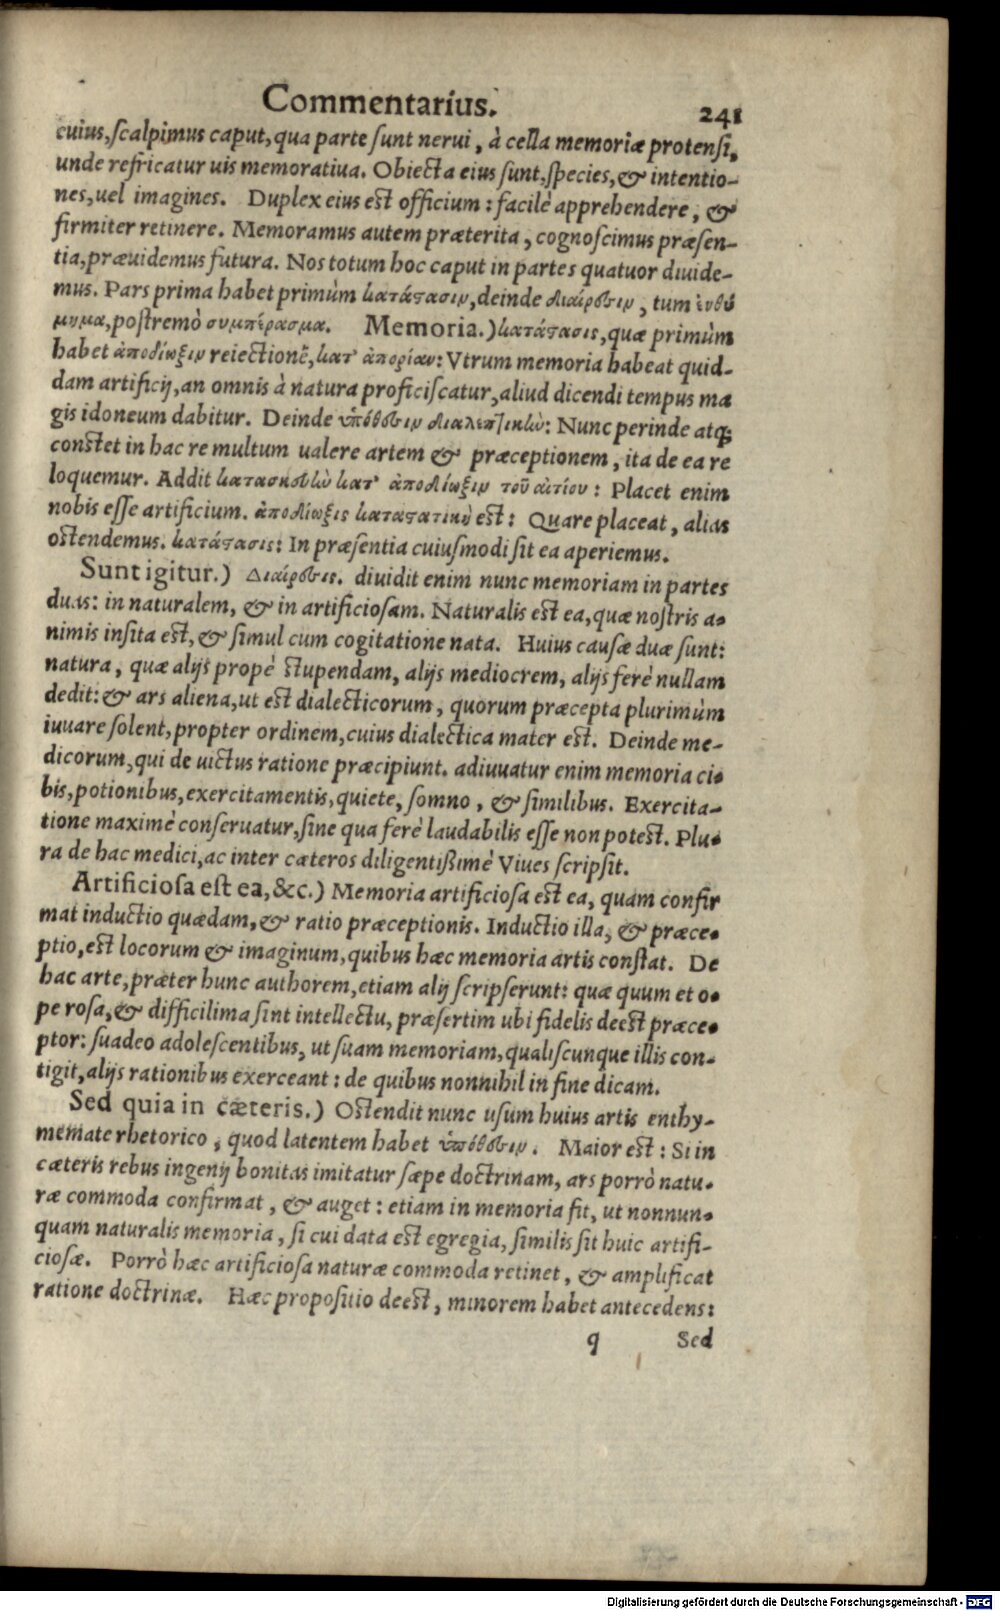 Commentarius. 241
cuius, scalpimus caput, qua parte sunt nerui, à cella memoriæ protensi,
unde refricatur uis memoratiua. Obiecta eius sunt, species, & intentio-
nes, uel imagines. Duplex eius est officium: facilè apprehendere, &
firmiter retinere. Memoramus autem præterita, cognoscimus præsen-
tia, præuidemus futura. Nos totum hoc caput in partes quatuor diuide-
mus. Pars prima habet primùm κατάστασιν, deinde διαίρεσιν, tum ἐνθύ
μημα, postremò συμπέρασμα. Memoria.) κατάστασις, quæ primùm
habet ἀποδίωξιν reiectionẽ, κατ' ἀπορίαν: Vtrum memoria habeat quid-
dam artificij, an omnis à natura proficiscatur, aliud dicendi tempus ma
gis idoneum dabitur. Deinde ὑπόθεσιν διαλεκτικὴν: Nunc perinde atq;
constet in hac re multum ualere artem & præceptionem, ita de ea re
loquemur. Addit κατασκευὴν κατ' ἀποδίωξιν τοῦ αἰτίου: Placet enim
nobis esse artificium. ἀποδίωξις καταστατικὴ est: Quare placeat, alias
ostendemus. κατάστασις: In præsentia cuiusmodi sit ea aperiemus.
Sunt igitur.) Διαίρεσις. diuidit enim nunc memoriam in partes
duas: in naturalem, & in artificiosam. Naturalis est ea, quæ nostris a-
nimis insita est, & simul cum cogitatione nata. Huius causæ duæ sunt:
natura, quæ alijs propè stupendam, alijs mediocrem, alijs ferè nullam
dedit: & ars aliena, ut est dialecticorum, quorum præcepta plurimùm
iuuare solent, propter ordinem, cuius dialectica mater est. Deinde me-
dicorum, qui de uictus ratione præcipiunt. adiuuatur enim memoria ci-
bis, potionibus, exercitamentis, quiete, somno, & similibus. Exercita-
tione maximè conseruatur, sine qua ferè laudabilis esse non potest. Plu-
ra de hac medici, ac inter cæteros diligentißimè Viues scripsit.
Artificiosa est ea, &c.) Memoria artificiosa est ea, quam confir
mat inductio quædam, & ratio præceptionis. Inductio illa, & præce-
ptio, est locorum & imaginum, quibus hæc memoria artis constat. De
hac arte, præter hunc authorem, etiam alij scripserunt: quæ quum et o-
pe rosa, & difficilima sint intellectu, præsertim ubi fidelis deest præce-
ptor: suadeo adolescentibus, ut suam memoriam, qualiscunque illis con-
tigit, alijs rationibus exerceant: de quibus nonnihil in fine dicam.
Sed quia in cæteris.) Ostendit nunc usum huius artis enthy-
memate rhetorico, quod latentem habet ὑπόθεσιν. Maior est: Si in
cæteris rebus ingenij bonitas imitatur sæpe doctrinam, ars porrò natu-
ræ commoda confirmat, & auget: etiam in memoria fit, ut nonnun-
quam naturalis memoria, si cui data est egregia, similis sit huic artifi-
ciosæ. Porrò hæc artificiosa naturæ commoda retinet, & amplificat
ratione doctrinæ. Hæc propositio deest, minorem habet antecedens:
q Sed
Digitalisierung gefördert durch die Deutsche Forschungsgemeinschaft - DFG